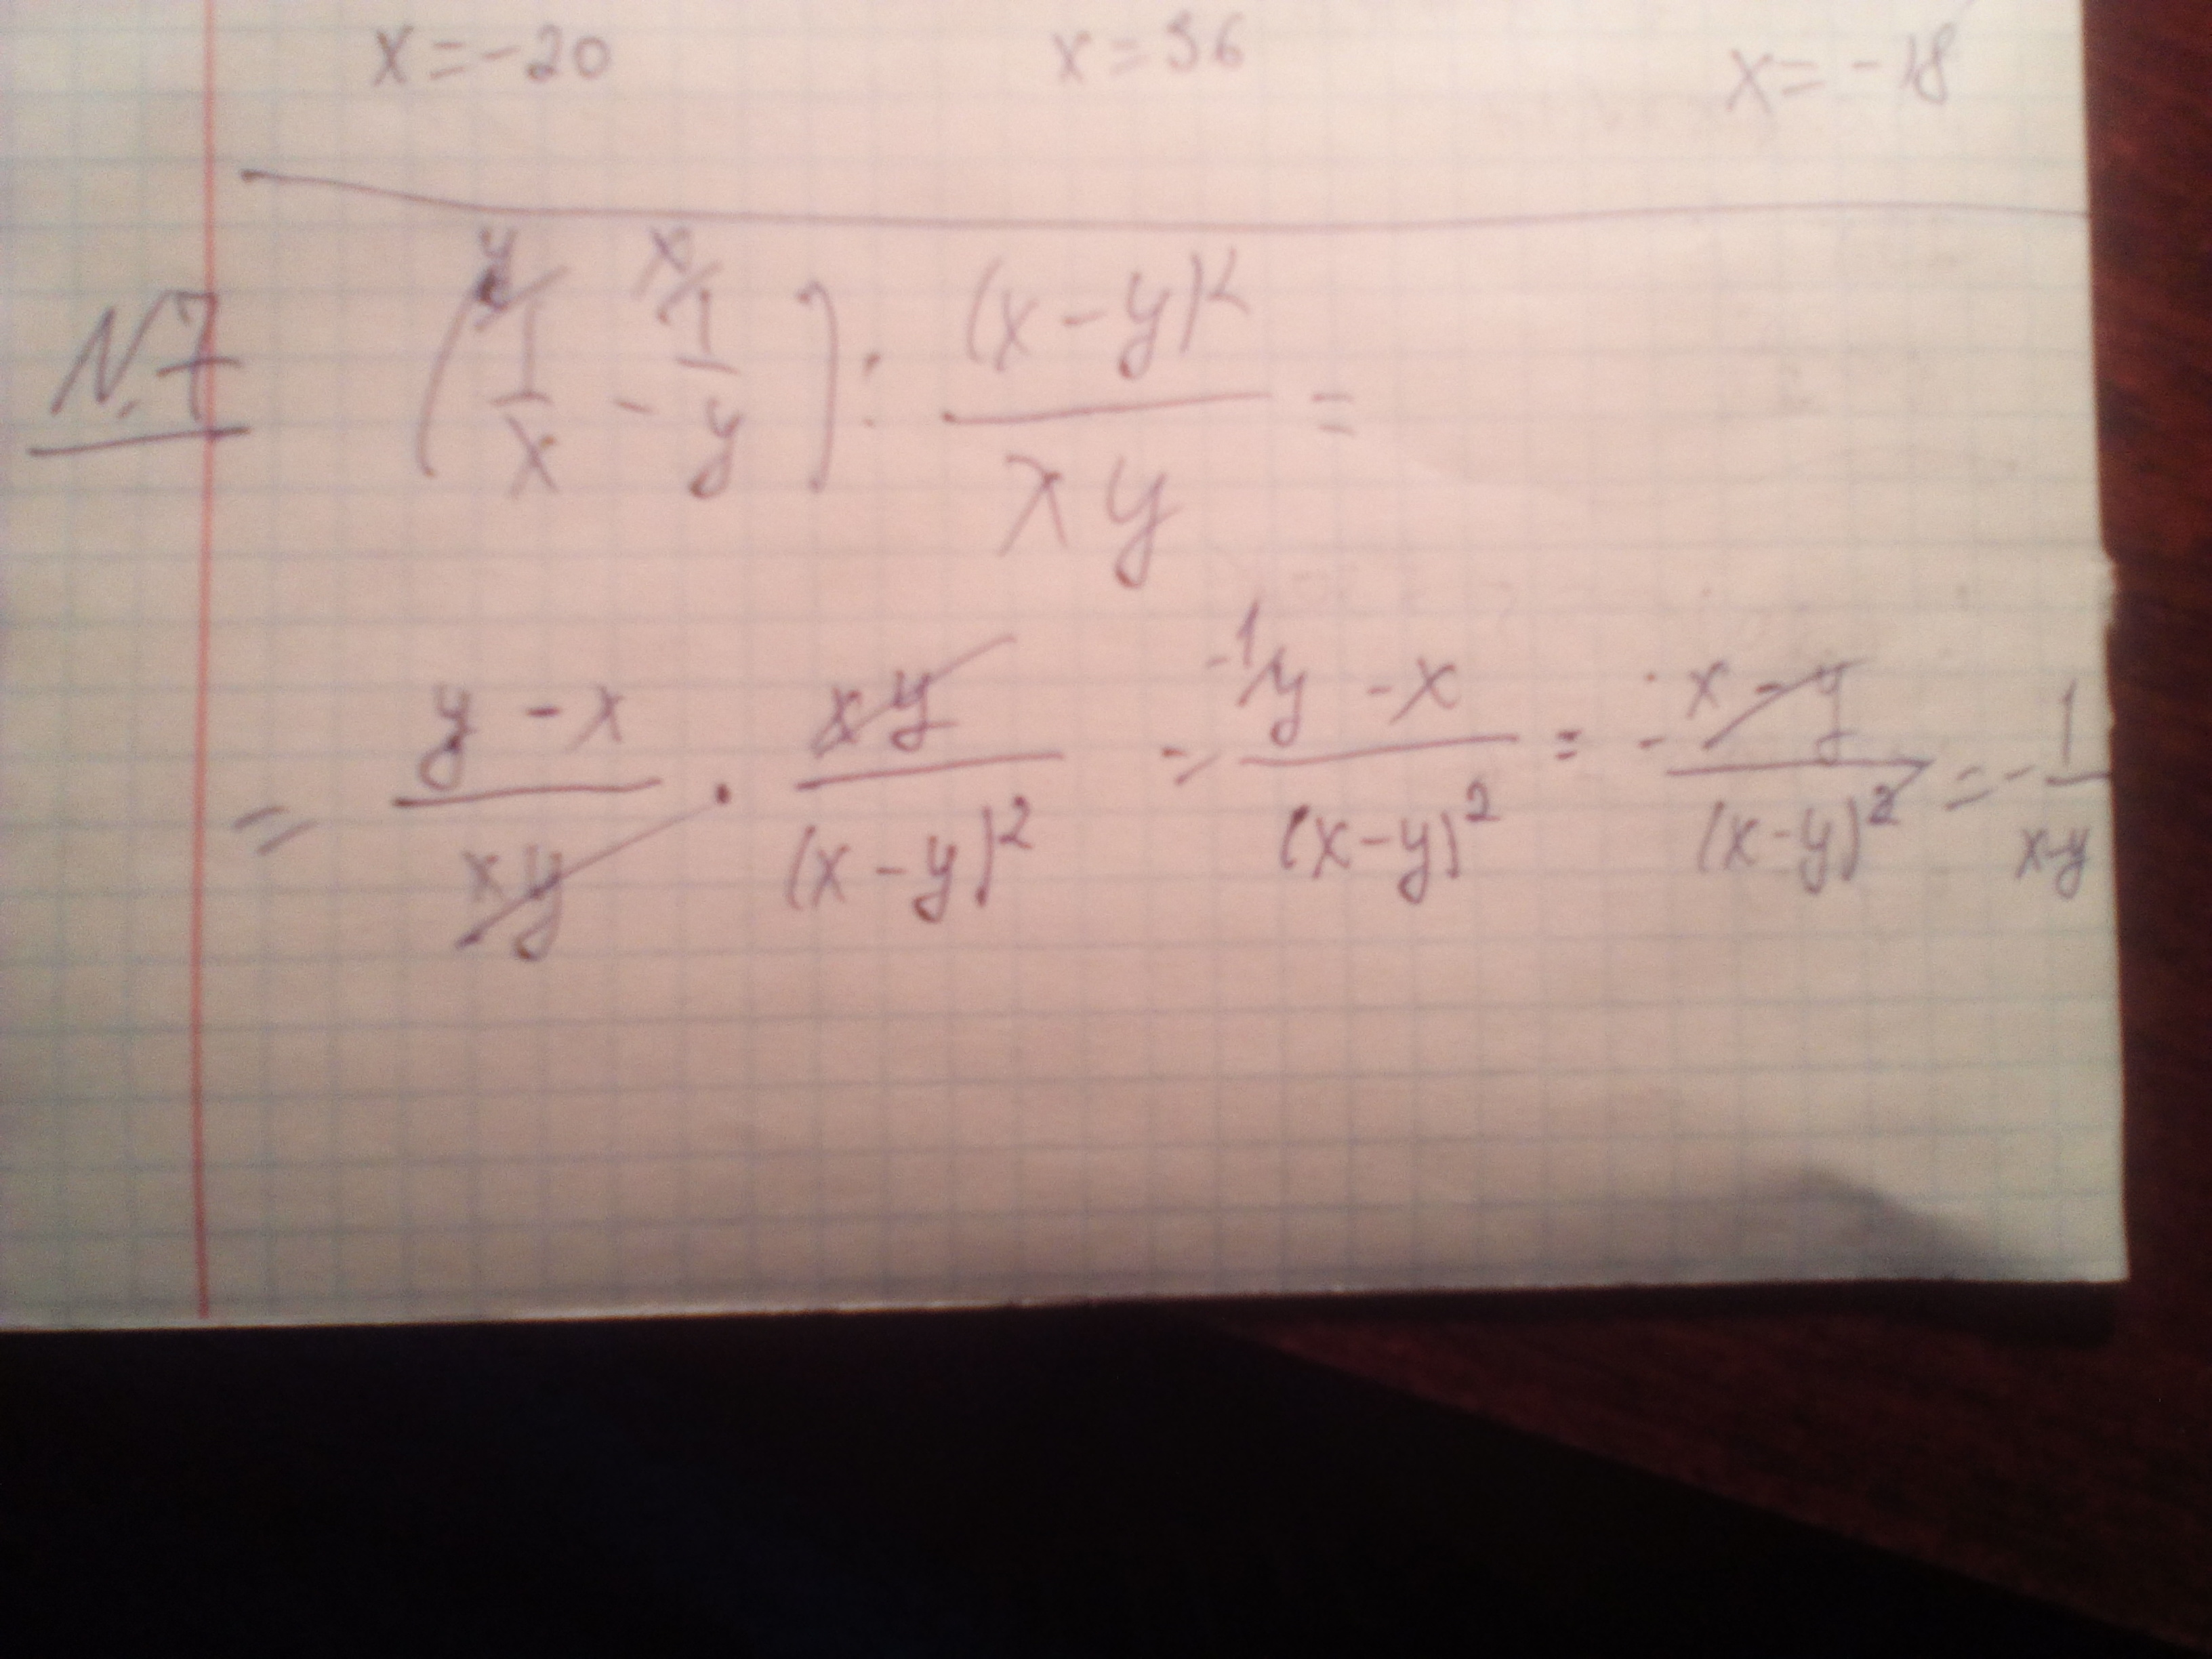 x=-20 x=36 x=-18
N.7 (y/1/x - x/1/y) : (x-y)²/xy =
= y-x/xy · xy/(x-y)² = -1/y-x/(x-y)² = -x-y/(x-y)² = -1/x-y